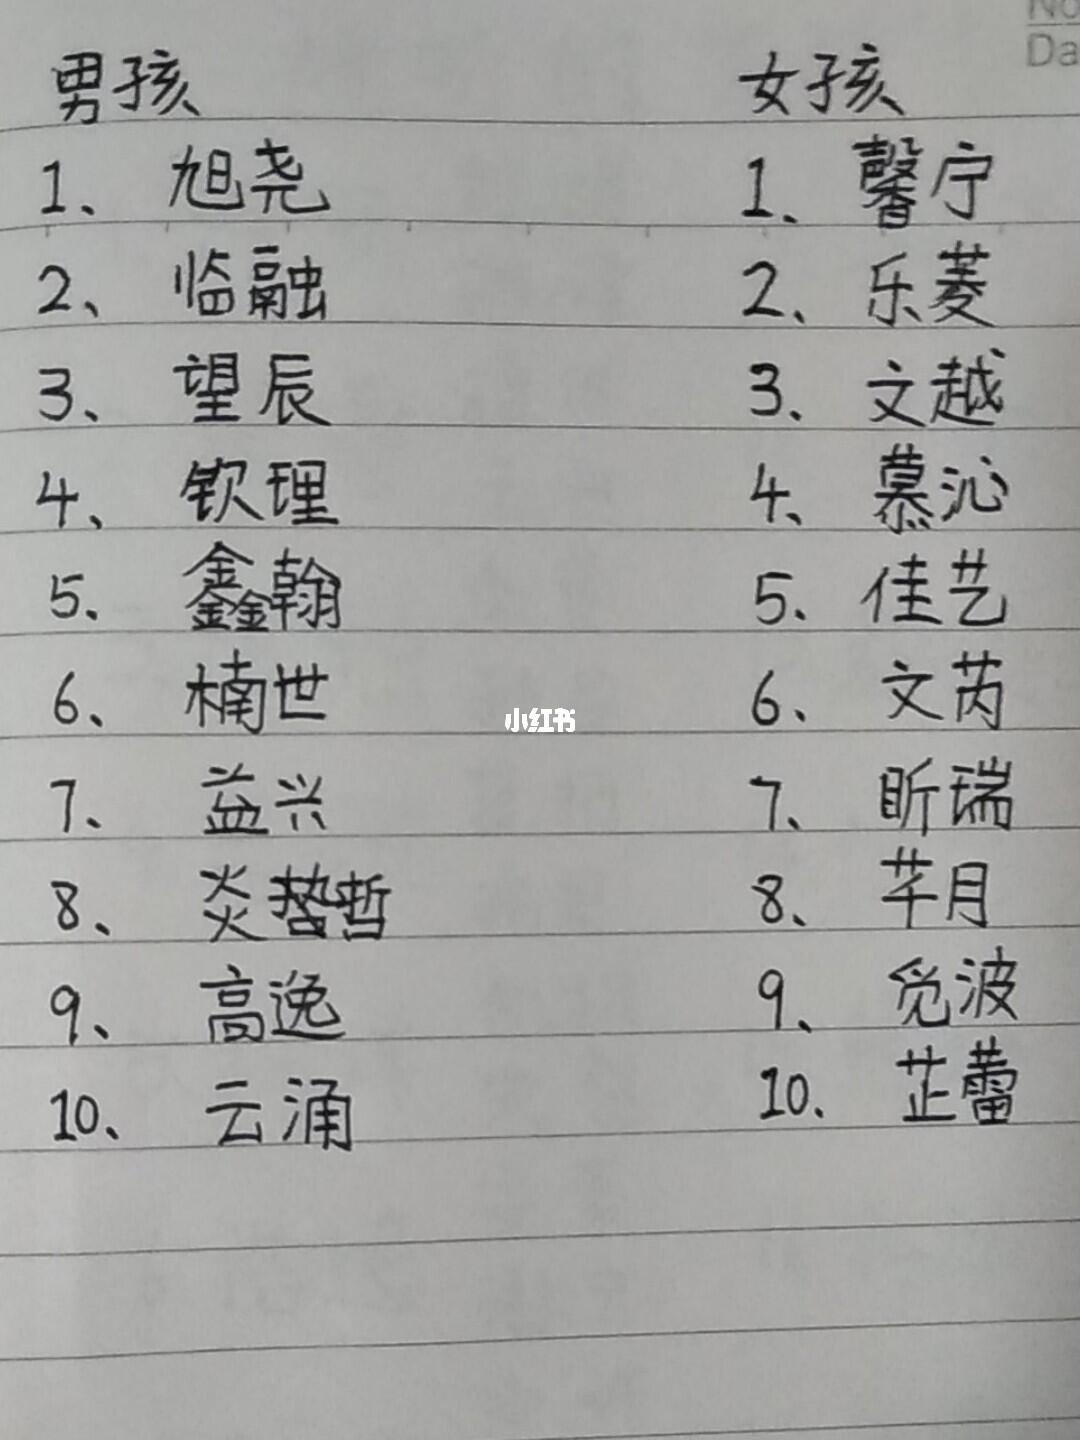 No
Da
男孩 女孩
1、 旭尧 1、 馨宁
2、 临融 2、 乐菱
3、 望辰 3、 文越
4、 钦理 4、 慕沁
5、 鑫翰 5、 佳艺
6、 楠世 6、 文芮
小红书
7、 益兴 7、 昕瑞
8、 炎哲 8、 芊月
9、 高逸 9、 觅波
10、 云涌 10、 芷蕾